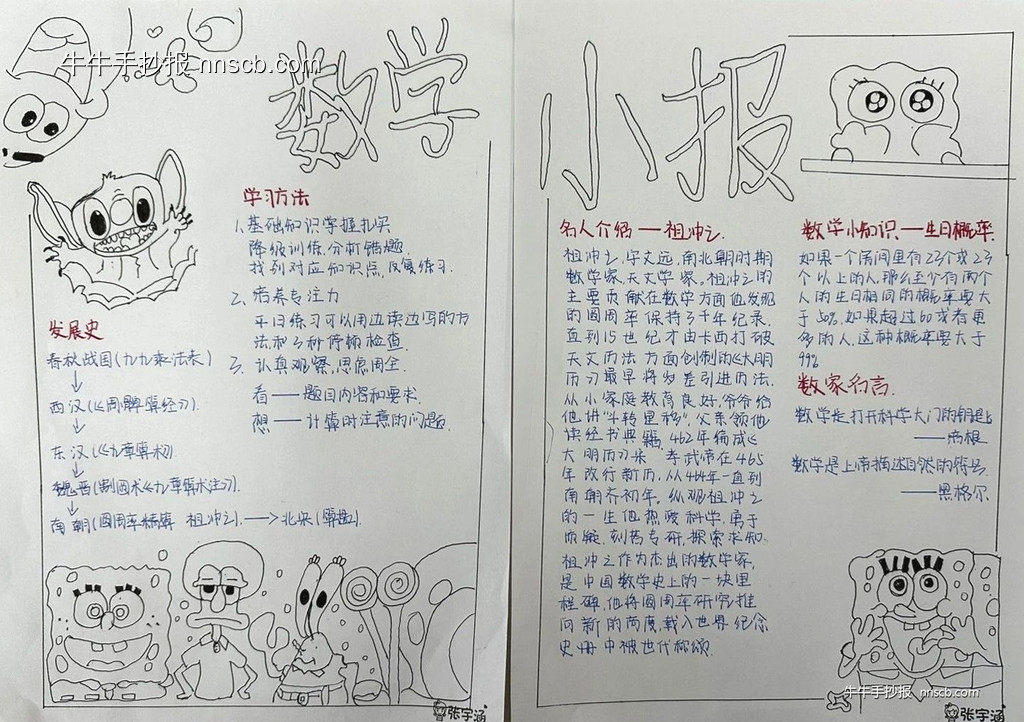 牛牛手抄报 nnscb.com
数学
学习方法
1、基础知识掌握扎实
降级训练,分析错题
找到对应知识点,反复练习.
2、培养专注力
平日练习可以用边读边写的方
法,和3秒停顿检查.
3、认真观察,思虑周全
看——题目内容和要求
想——计算时注意的问题.
发展史
春秋战国(九九乘法表)
↓
西汉(《周髀算经》).
↓
东汉(《九章算术》)
↓
魏晋(割圆术《九章算术注》).
↓
南朝(圆周率精算 祖冲之).——>北宋(算盘).
张宇涵
小报
名人介绍——祖冲之.
祖冲之,字文远,南北朝时期
数学家,天文学家。祖冲之的
主要贡献在数学方面他发现
的圆周率保持了千年纪录.
直到15世纪才由卡西打破
天文历法方面创制的《大明
历》最早将岁差引进历法.
从小家庭教育良好,爷爷给
他讲“斗转星移”,父亲领他
读经书典籍,462年编成《
大明历》孝武帝在465
年改行新历,从464年一直到
南朝齐初年,纵观祖冲之
的一生他热爱科学,勇于
质疑,刻苦专研,探索求知.
祖冲之作为杰出的数学家,
是中国数学史上的一块里
程碑,他将圆周率研究推
向新的高度,载入世界纪念
史册中被世代称颂.
数学小知识——生日概率
如果一个房间里有23个或23
个以上的人,那么至少有两个
人的生日相同的概率要大
于50%.如果超过60或者更
多的人,这种概率要大于
99%
数家名言.
数学是打开科学大门的钥匙
——培根
数学是上帝描述自然的符号.
——黑格尔
牛牛手抄报 nnscb.com
张宇涵